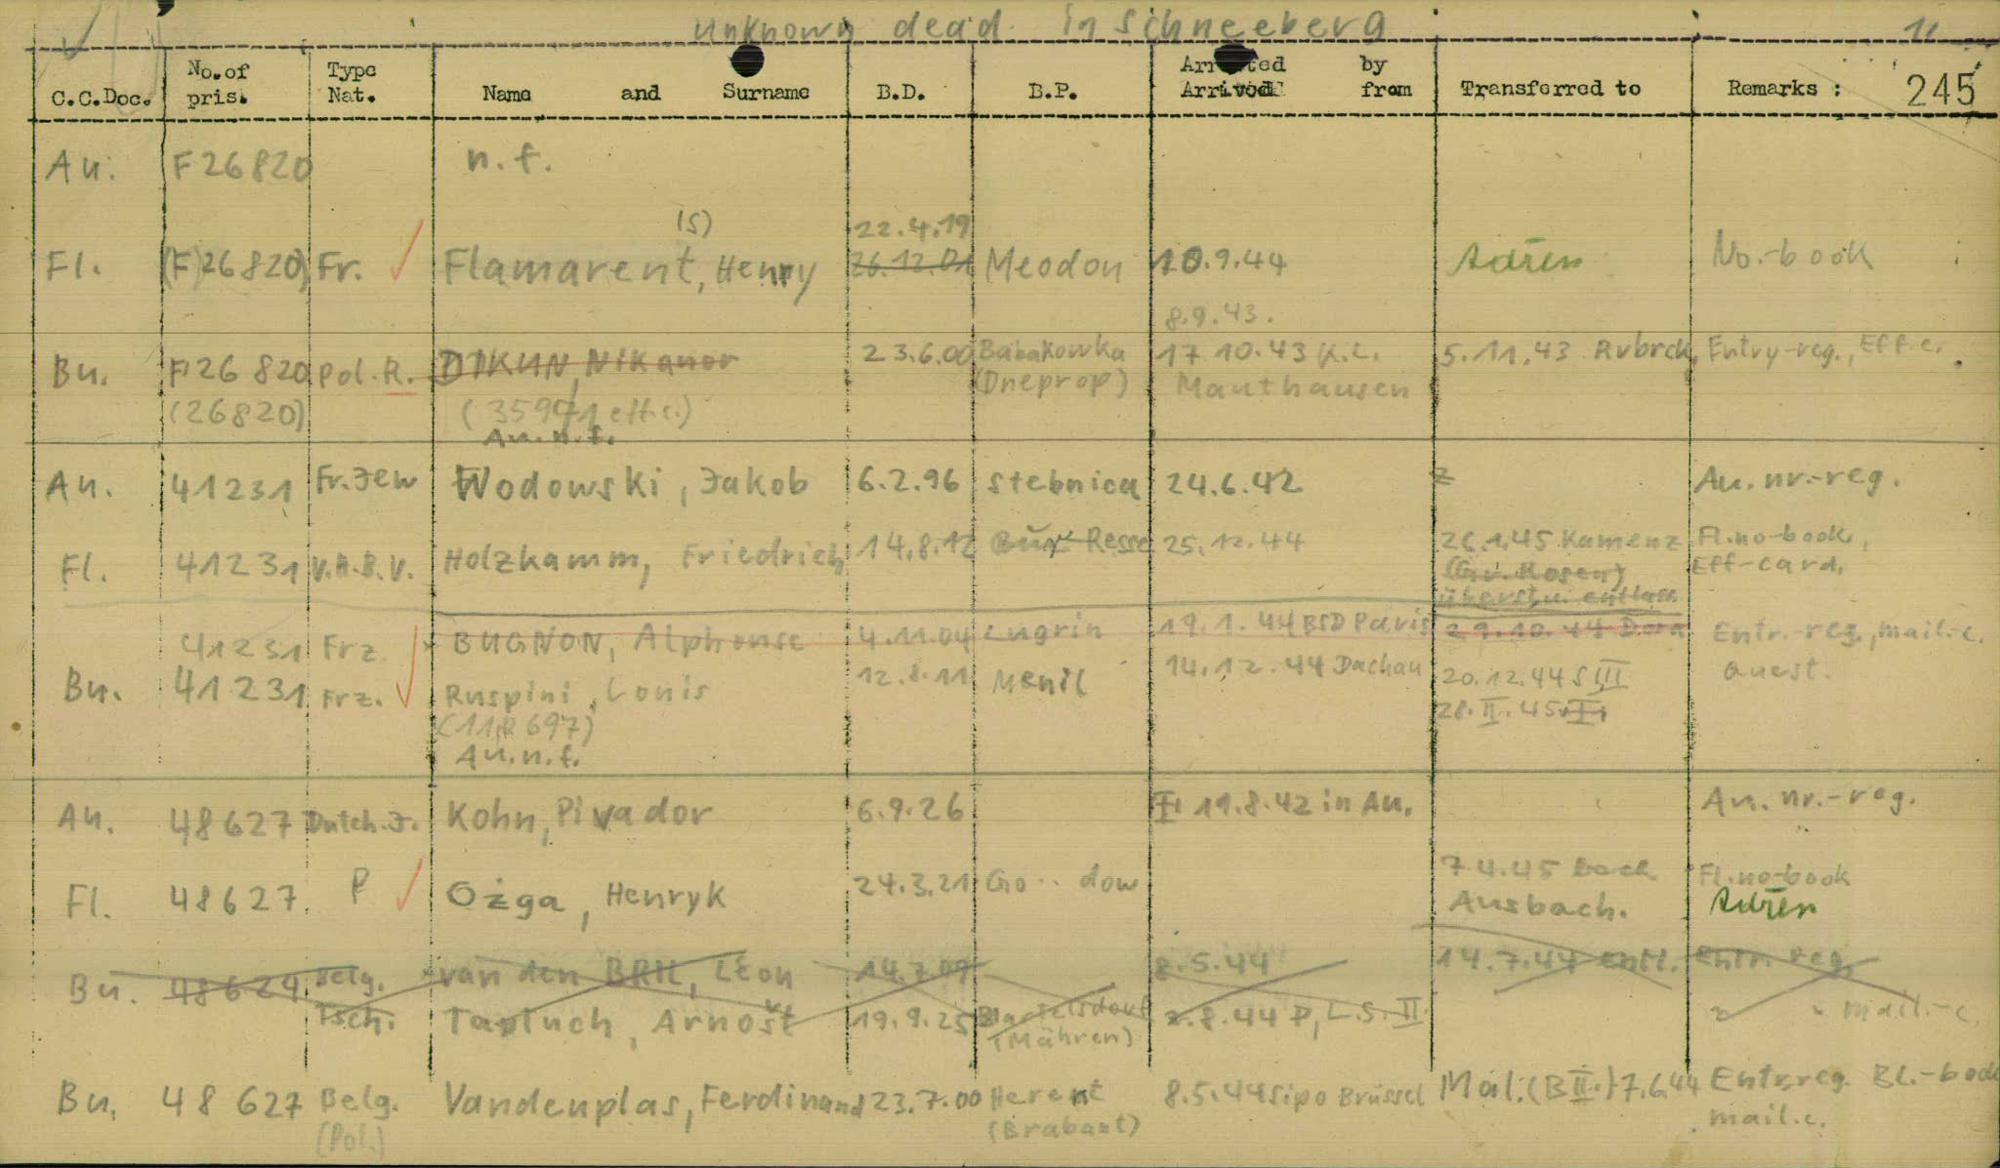 unknown dead in Schneeberg 11
C.C.Doc. No. of pris. Type Nat. Name and Surname B.D. B.P. Arrested by Arrived from Transferred to Remarks : 245
Au. F 26820 n. f.
(S) 22.4.19
Fl. (F)26820) Fr. Flamarent, Henry 26.12.01 Meodon 10.9.44 Adren No.-book
8.9.43.
Bu. F26 820 Pol. R. DIKUN, Nikanor 23.6.00 Babakowka 17.10.43 K.L. 5.11.43 Rubrck, Entry-reg., Eff.c.
(26820) (35971 eff.c.) (Dneprop) Mauthausen
Au. n. f.
Au. 41231 Fr. Jew Wodowski, Jakob 6.2.96 Stebnica 24.6.42 Z Au. nr.-reg.
Fl. 41231 V.A.B.V. Holzkamm, Friedrich 14.8.12 Resse 25.12.44 26.1.45 Kamenz Fl.no-book,
(Gr. Rosen) Eff-card.
überst. u. entlass
41231 Frz. BUGNON, Alphonse 4.11.04 Lugrin 19.1.44 BSD Paris 29.10.44 Dora Entr.-reg., mail-c.
Bu. 41231 Frz. Ruspini, Louis 12.8.11 Menil 14.12.44 Dachau 20.12.44 S III Quest.
(11 697) 28.II.45
Au. n. f.
Au. 48627 Dutch. J. Kohn, Pivador 6.9.26 19.8.42 in Au. Au. nr.-reg.
Fl. 48627. P Ożga, Henryk 24.3.21 Go.. dow 7.4.45 Fl.no-book
Ansbach. Adren
Bu. 48624 Belg. van den BRIL, Léon 14.7.09 8.5.44 14.7.44 entl. Entr. reg.
Tsch. Tapluch, Arnošt 19.9.25 2.8.44 P, L.S. II " " Mail.-c.
(Mähren)
Bu, 48 627 Belg. Vandenplas, Ferdinand 23.7.00 Herent 8.5.44 Sipo Brüssel Mal.(B II.) 7.6.44 Entr.reg. Bl.-book
(Pol.) (Brabant) mail.c.